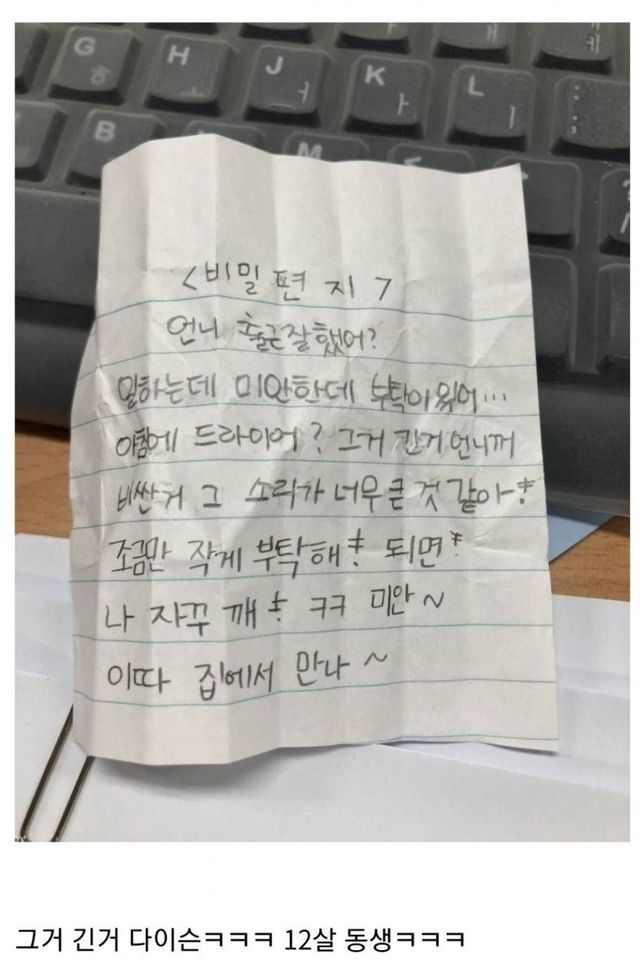 G ㅎ
H ㅗ
J ㅓ
K ㅏ
L ㅣ
; :
B
M
<비밀 편지>
언니 출근잘했어?
일하는데 미안한데 부탁이 있어...
아침에 드라이어? 그거 긴거 언니꺼
비싼거 그 소리가 너무 큰 것 같아ㅎ
조금만 작게 부탁해ㅎ 되면ㅎ
나 자꾸 깨ㅎ ㅋㅋ 미안~
이따 집에서 만나~
그거 긴거 다이슨ㅋㅋㅋ 12살 동생ㅋㅋㅋ